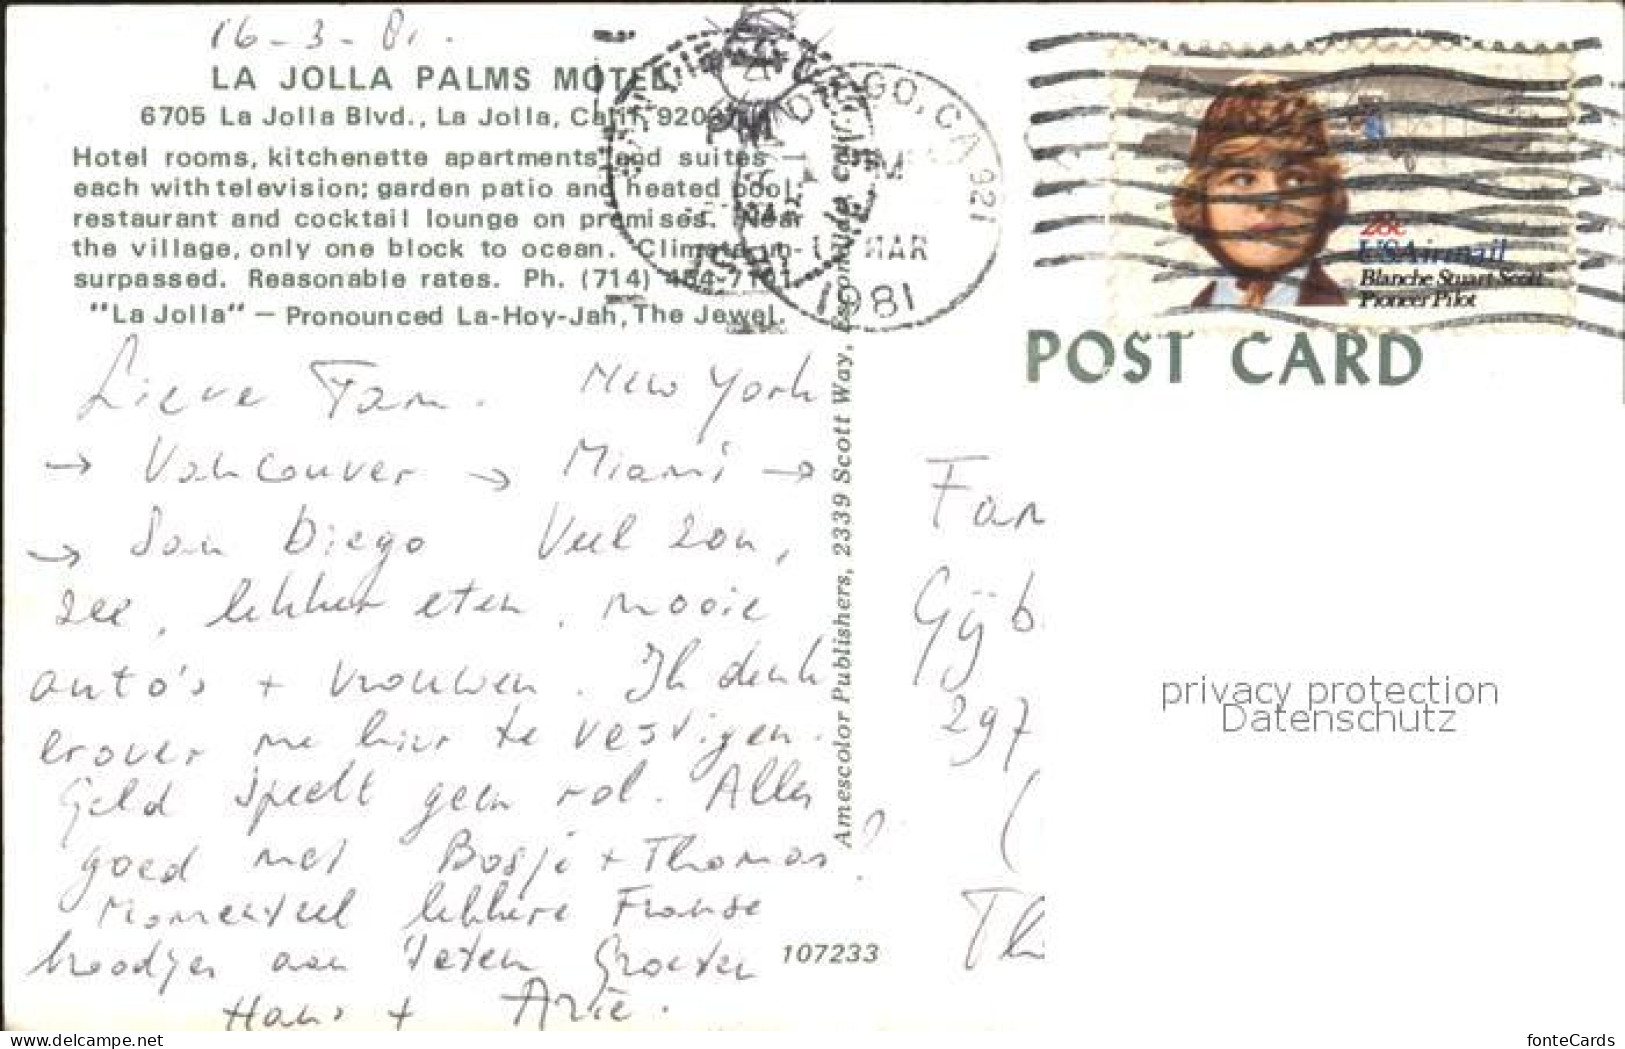 16-3-81.
LA JOLLA PALMS MOTEL
6705 La Jolla Blvd., La Jolla, Calif. 920
Hotel rooms, kitchenette apartments and suites —
each with television; garden patio and heated pool;
restaurant and cocktail lounge on premises. Near
the village, only one block to ocean. Climate un-
surpassed. Reasonable rates. Ph. (714) 454-7101.
"La Jolla" — Pronounced La-Hoy-Jah, The Jewel.
Lieve Fam. New York
→ Vancouver → Miami →
→ San Diego Veel zon,
zee, lekker eten, mooie
auto's + vrouwen. Ik denk
erover me hier te vestigen.
Geld speelt geen rol. Alles
goed met Bosje + Thomas?
Momenteel lekkere Franse
broodjes aan 't eten Groeten
Hans + Arie.
Amescolor Publishers, 2339 Scott Way, Escondido, Calif.
107233
PM
DIEGO, CA 921
PM
MAR
1981
28c
USAirmail
Blanche Stuart Scott
Pioneer Pilot
POST CARD
Fam
Gijb
297
(
Th
privacy protection
Datenschutz
www.delcampe.net
fonteCards